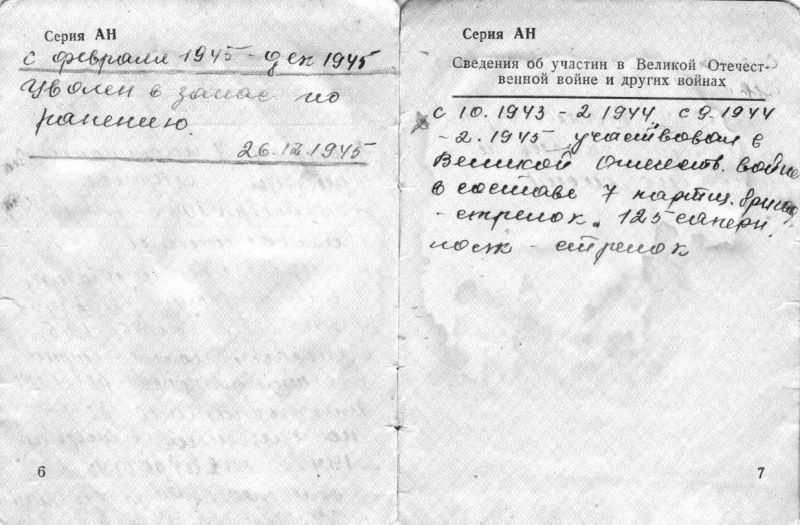 Серия АН
с февраля 1945 - дек 1945
уволен в запас по
ранению.
26.12.1945
6
Серия АН
Сведения об участии в Великой Отечест-
венной войне и других войнах
с 10.1943 - 2 1944, с 9.1944
- 2.1945 участвовал в
Великой Отечеств. войне
в составе 7 партиз. бригад
- стрелок, 125 саперн.
- стрелок
7